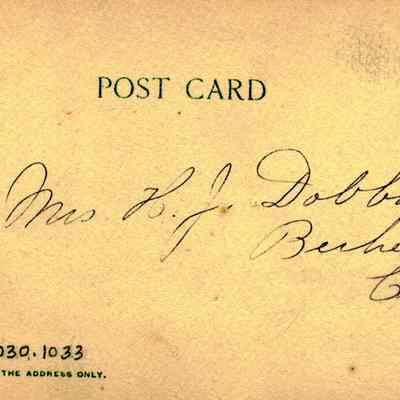 POST CARD
Mrs H. J. Dobb
Berke
C
030.1033
THE ADDRESS ONLY.